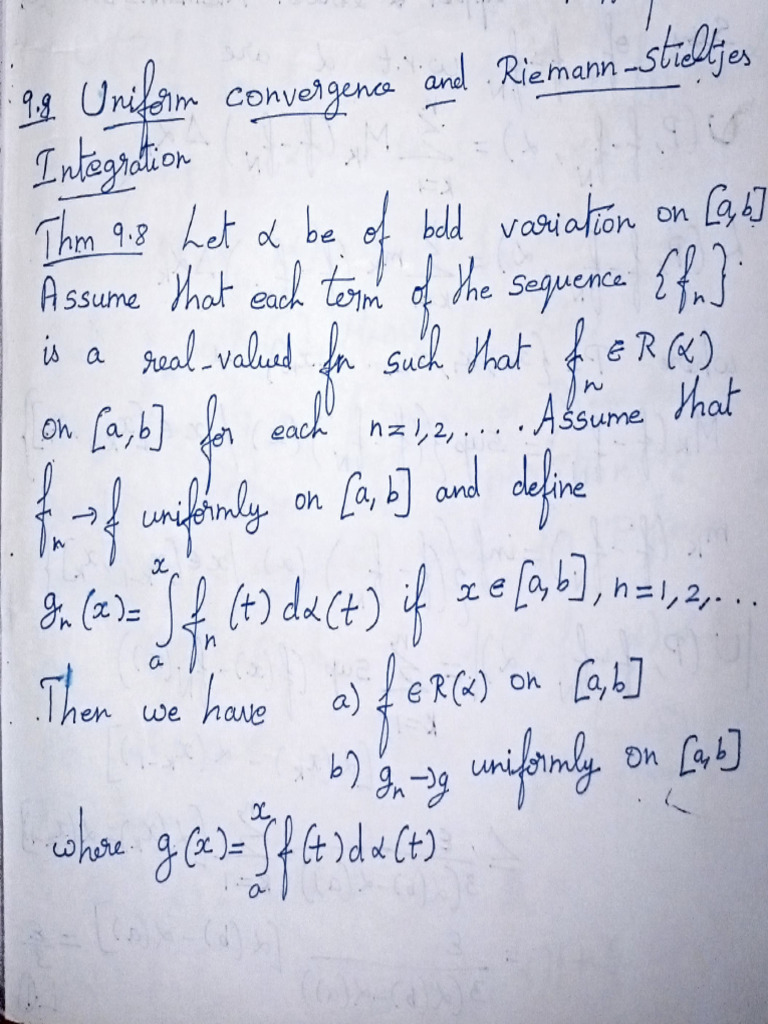 9.8 Uniform convergence and Riemann-Stieltjes
Integration
Thm 9.8 Let α be of bdd variation on [a,b].
Assume that each term of the sequence {fₙ}
is a real-valued fn such that fₙ ∈ R(α)
on [a,b] for each n=1,2,.... Assume that
fₙ → f uniformly on [a,b] and define
gₙ(x)= ∫ₐˣ fₙ(t) dα(t) if x∈[a,b], n=1,2,...
Then we have a) f ∈ R(α) on [a,b]
b) gₙ→g uniformly on [a,b]
where g(x)= ∫ₐˣ f(t) dα(t)